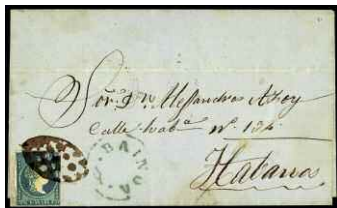 Sor. Dn. Alessandro Ahoy
Calle hab.a nº. 134
Habana
BAINOA